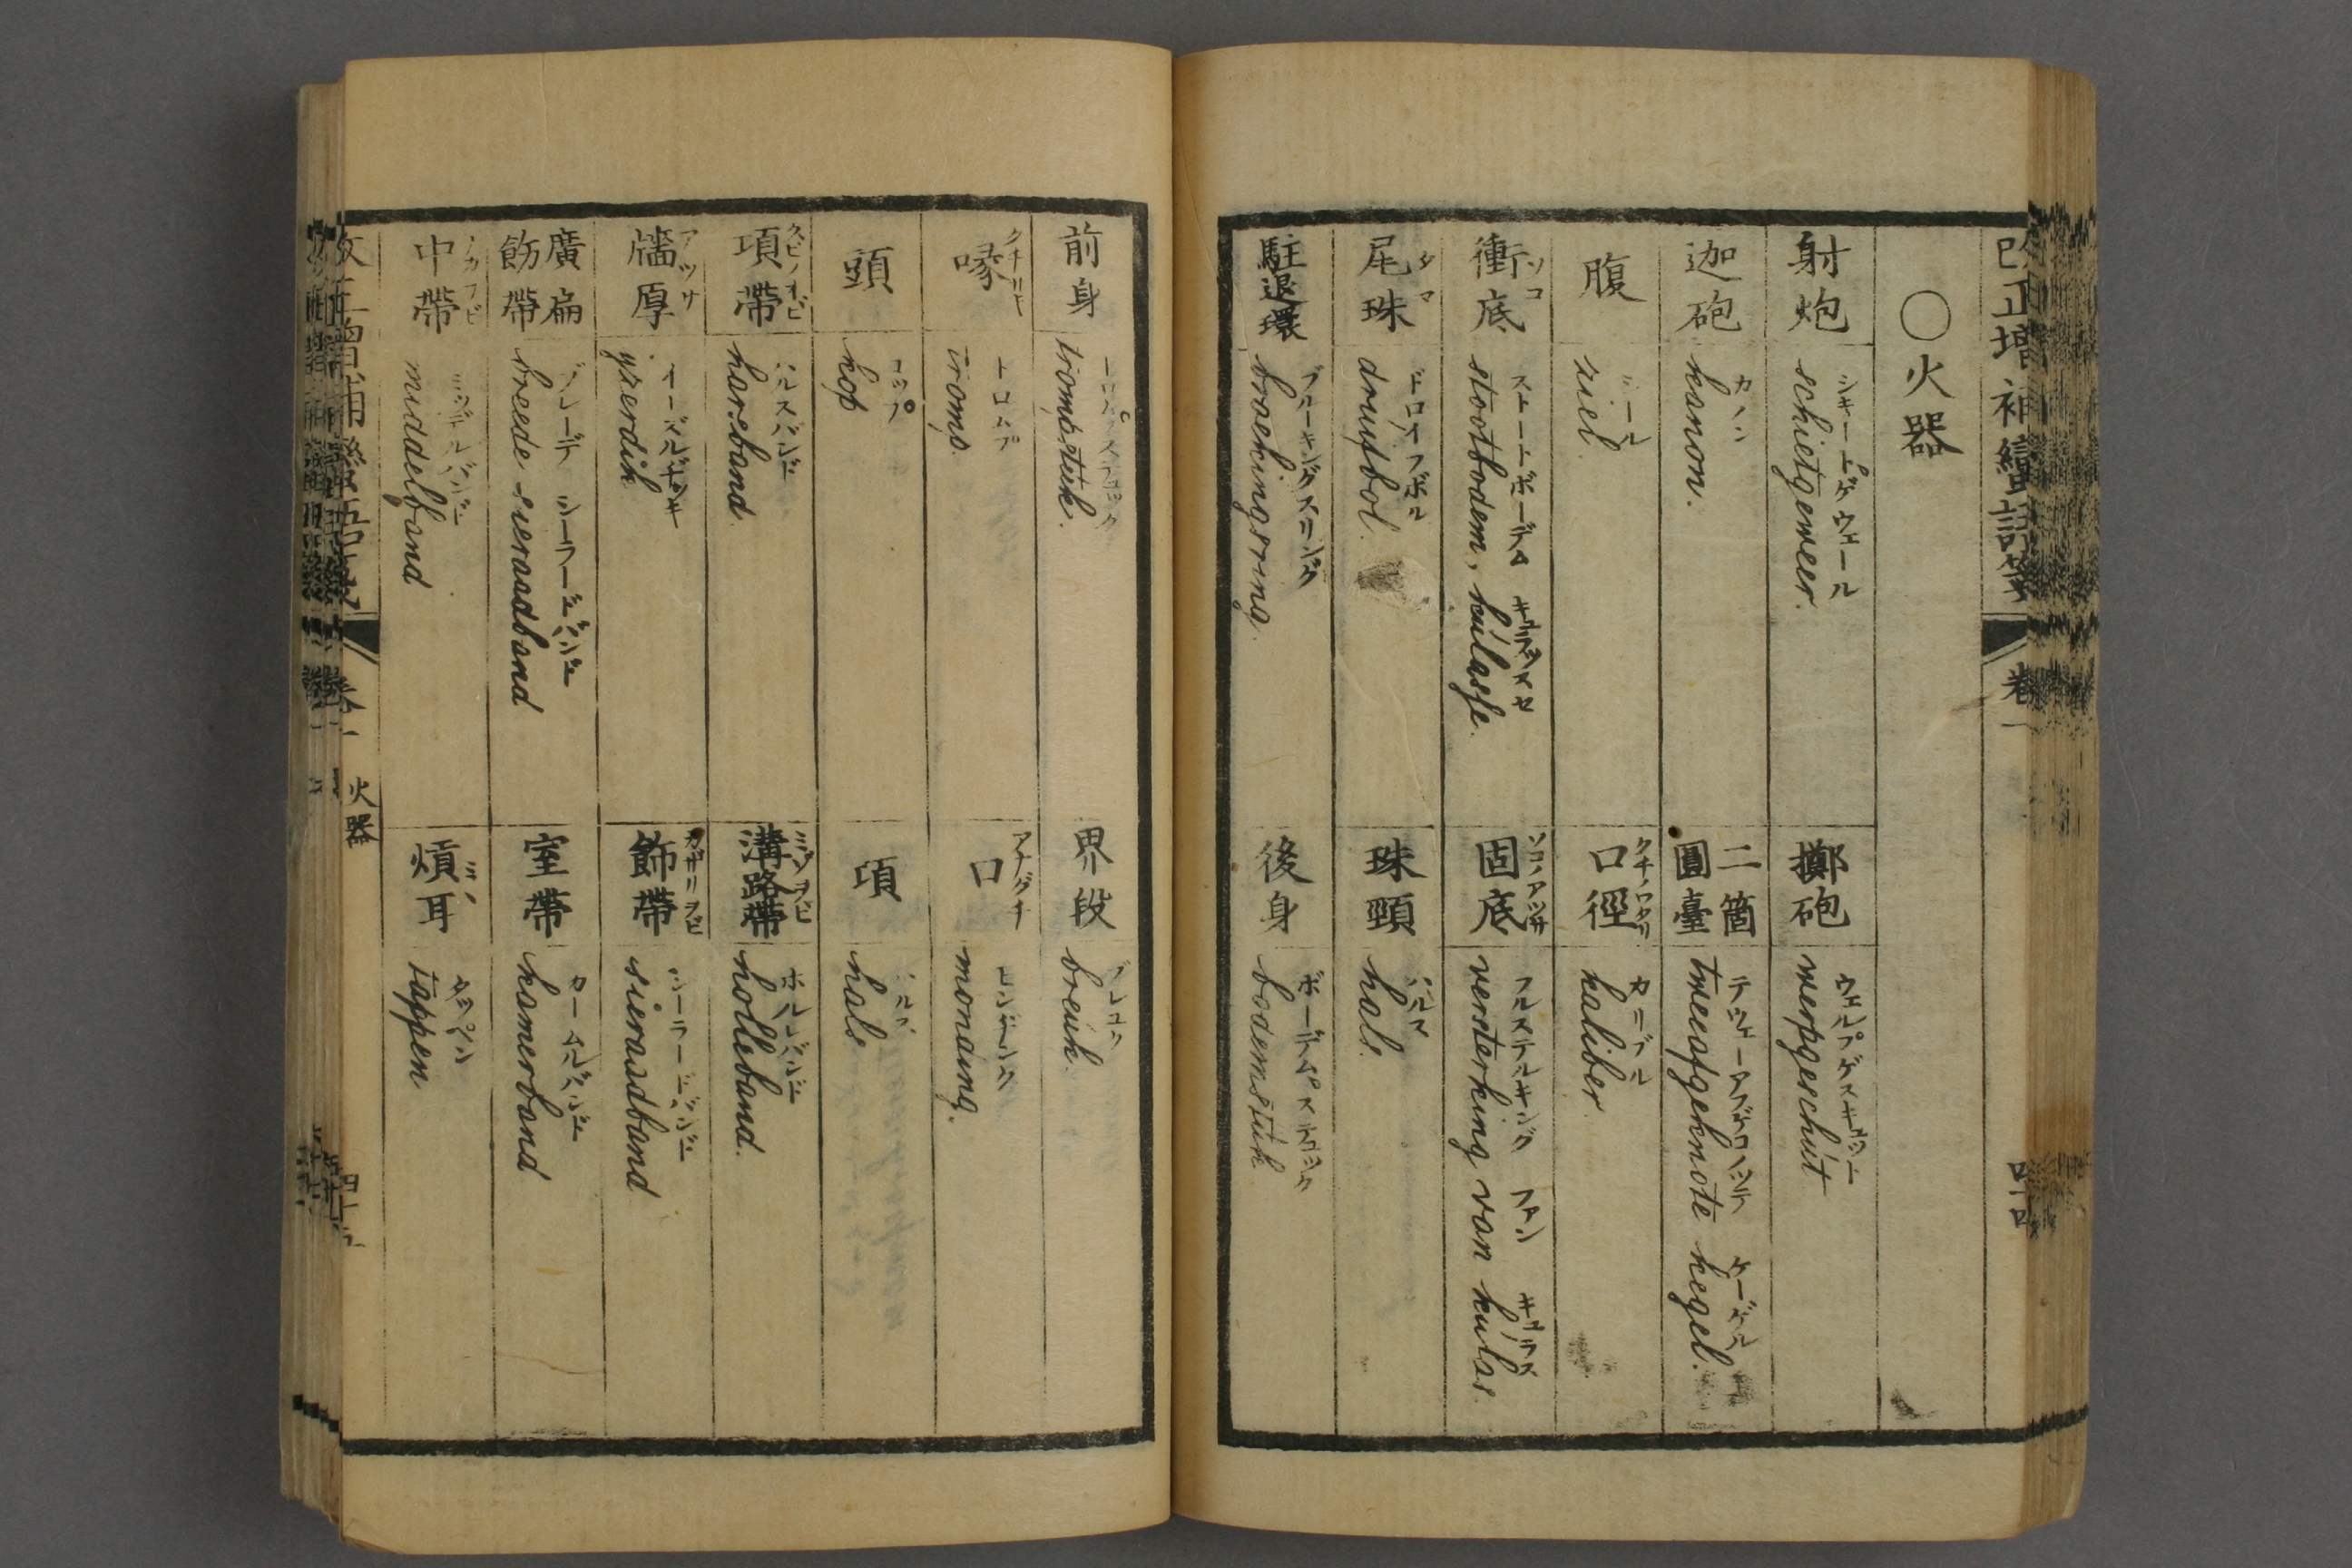 改正增補蠻語箋
卷一
〇火器
射炮
シキートゲウェール
schietgeweer.
擲砲
ウェルプゲスキュット
werpgeschut
迦砲
カノン
kanon.
二箇圓臺
テウェーアフゲコノッテ ケーゲル
tweeafgeknote kegel.
腹
シール
siel.
口徑
クチノワタリ
カリブル
kaliber.
衝底
ソコ
ストートボーデム キュラスセ
stootbodem, kulasse.
固底
ソコノアツサ
フルステルキング ファン キュラス
versterking van kulas.
尾珠
タマ
ドロイフボル
druyfbol.
珠頸
ハルス
hals.
駐退環
ブルーキングスリング
broekingsring.
後身
ボーデムステュック
bodemstuk
前身
トロムプステュック
trompstuk.
界段
ブレュク
breuk.
喙
クチサキ
トロムプ
tromp.
口
アナグチ
モンヂング
monding.
頭
コップ
kop
項
ハルス
hals
項帶
クビノオビ
ハルスバンド
halsband.
溝路帶
ミゾヲビ
ホルレバンド
holleband.
牆厚
アツサ
イーズルヂッキ
yzerdik
飾帶
カザリヲビ
シーラードバンド
sieraadband
廣扁飭帶
ブレーデ シーラードバンド
breede sieraadband
室帶
カームルバンド
kamerband
中帶
ナカヲビ
ミッデルバンド
middelband
熕耳
ミミ
タッペン
tappen
卷一
火器
四十五